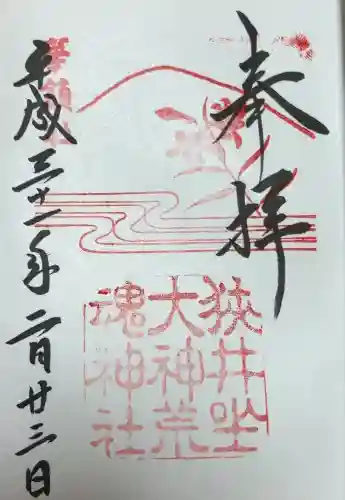 奉拝
狭井坐
大神荒
魂神社
平成三十一年二月廿三日